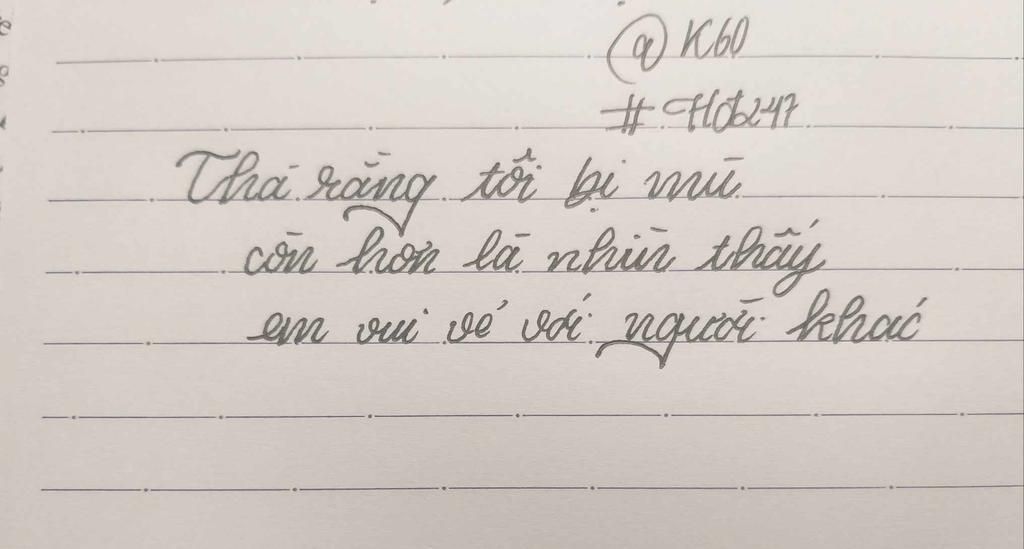 @ K60
# Hob247
Thà rằng tôi bị mù
còn hơn là nhìn thấy
em vui vẻ với người khác